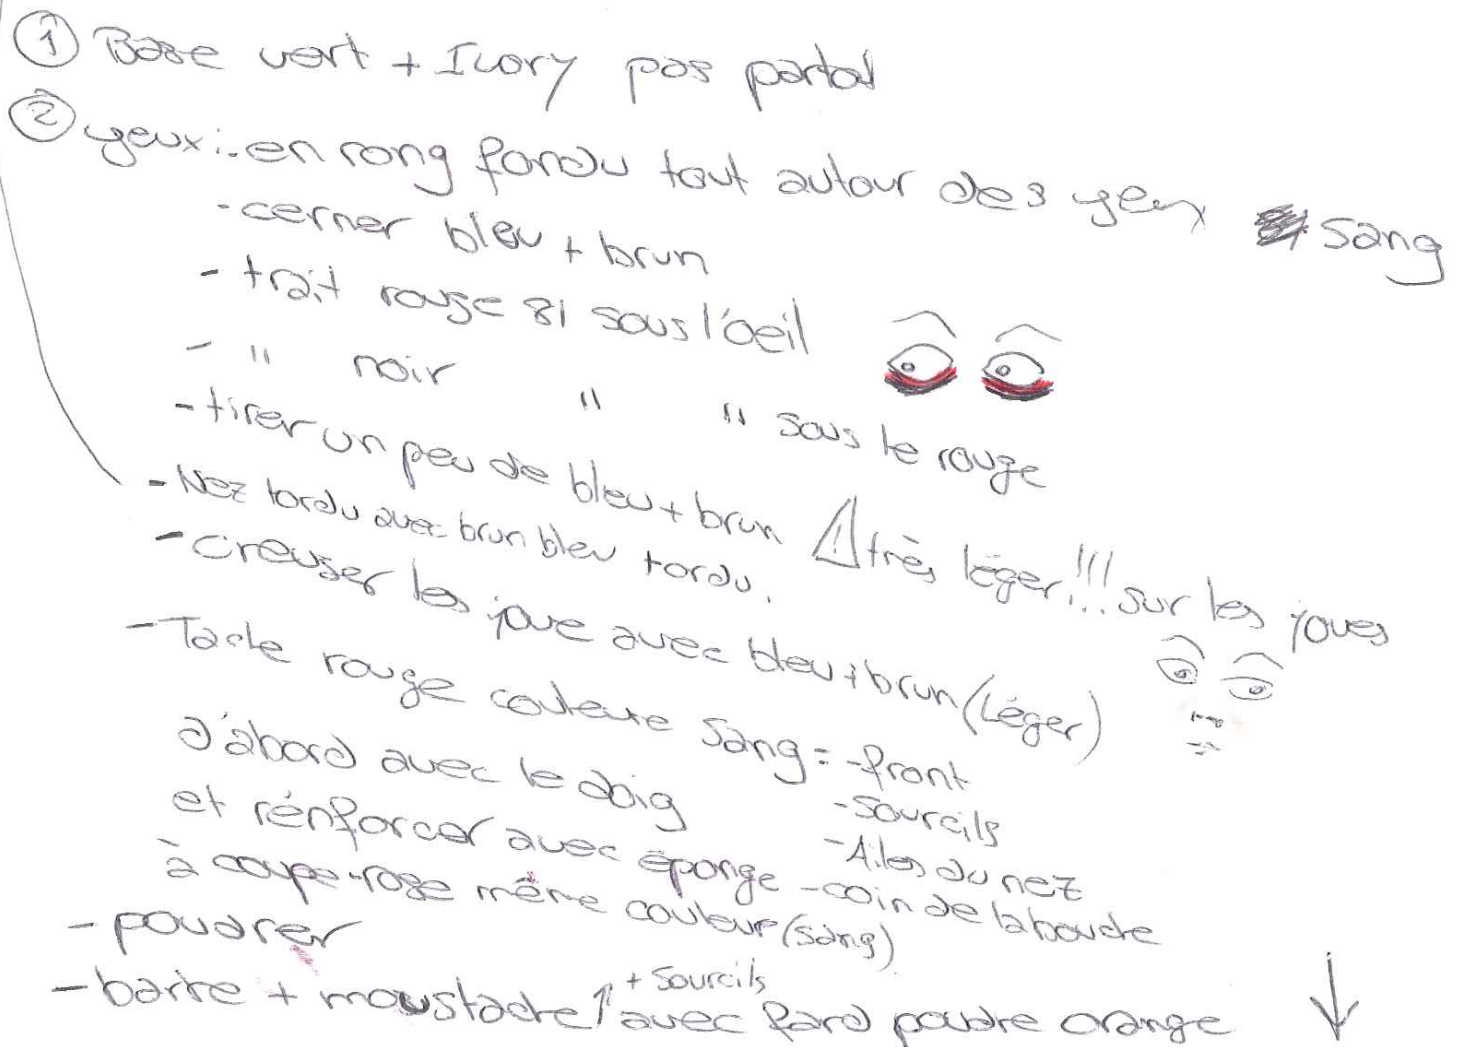 ① Base vert + Ivory pas partout
② yeux: - en rong fondu tout autour des yeux sang
- cerner bleu + brun
- trait rouge 81 sous l'oeil
- " noir " " sous le rouge
- tirer un peu de bleu + brun ⚠ très léger!!! sur les joues
- Nez tordu avec brun bleu tordu.
- creuser les joue avec bleu + brun (Léger)
- Tache rouge couleure Sang = - front
d'abord avec le doig - Sourcils
et rénforcer avec éponge - Ailes du nez
à coupe-rose même couleur (sang) - coin de la bouche
- poudrer
- barbe + moustache ↑ + Sourcils avec fard poudre orange ↓